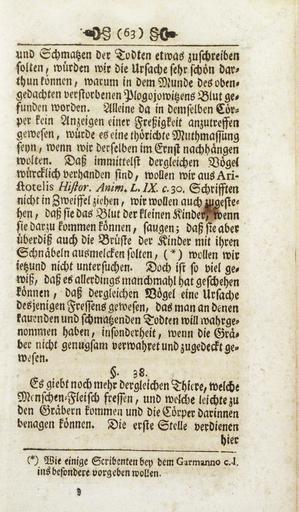 (63)
und Schmatzen der Todten etwas zuschreiben
solten, würden wir die Ursache sehr schön dar-
thun können, warum in dem Munde des oben-
gedachten verstorbenen Plogojowitzens Blut ge-
funden worden. Alleine da in demselben Cör-
per kein Anzeigen einer Freßigkeit anzutreffen
gewesen, würde es eine thörichte Muthmassung
seyn, wenn wir derselben im Ernst nachhängen
wolten. Daß immittelst dergleichen Vögel
würcklich verhanden sind, wollen wir aus Ari-
stotelis Histor. Anim. L. IX. c. 30. Schrifften
nicht in Zweiffel ziehen, wir wollen auch zugeste-
hen, daß sie das Blut der kleinen Kinder, wenn
sie darzu kommen können, saugen; daß sie aber
überdiß auch die Brüste der Kinder mit ihren
Schnäbeln ausmelcken solten, (*) wollen wir
ietzund nicht untersuchen. Doch ist so viel ge-
wiß, daß es allerdings manchmahl hat geschehen
können, daß dergleichen Vögel eine Ursache
desjenigen Fressens gewesen, das man an denen
kauenden und schmatzenden Todten will wahrge-
nommen haben, insonderheit, wenn die Grä-
ber nicht genugsam verwahret und zugedeckt ge-
wesen.
§. 38.
Es giebt noch mehr dergleichen Thiere, welche
Menschen-Fleisch fressen, und welche leichte zu
den Gräbern kommen und die Cörper darinnen
benagen können. Die erste Stelle verdienen
hier
(*) Wie einige Scribenten bey dem Garmanno c. l.
ins besondere vorgeben wollen.